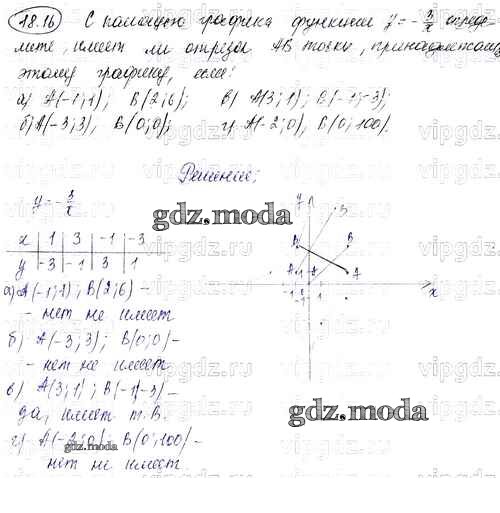 18.16 С помощью графика функции y = -3/x опреде-
лите, имеет ли отрезок AB точки, принадлежащие
этому графику, если:
а) A(-1; 1), B(2; 6); в) A(3; 1); B(-1; -3);
б) A(-3; 3), B(0; 0); г) A(-2; 0), B(0; 100).
Решение:
y = -3/x
x | 1 | 3 | -1 | -3
y | -3 | -1 | 3 | 1
а) A(-1; 1); B(2; 6) -
- нет не имеет
б) A(-3; 3); B(0; 0) -
- нет не имеет
в) A(3; 1); B(-1; -3) -
да, имеет т. B.
г) A(-2; 0), B(0; 100) -
нет не имеет
y
B
A
x
gdz.moda
gdz.moda
gdz.moda
vipgdz.ru